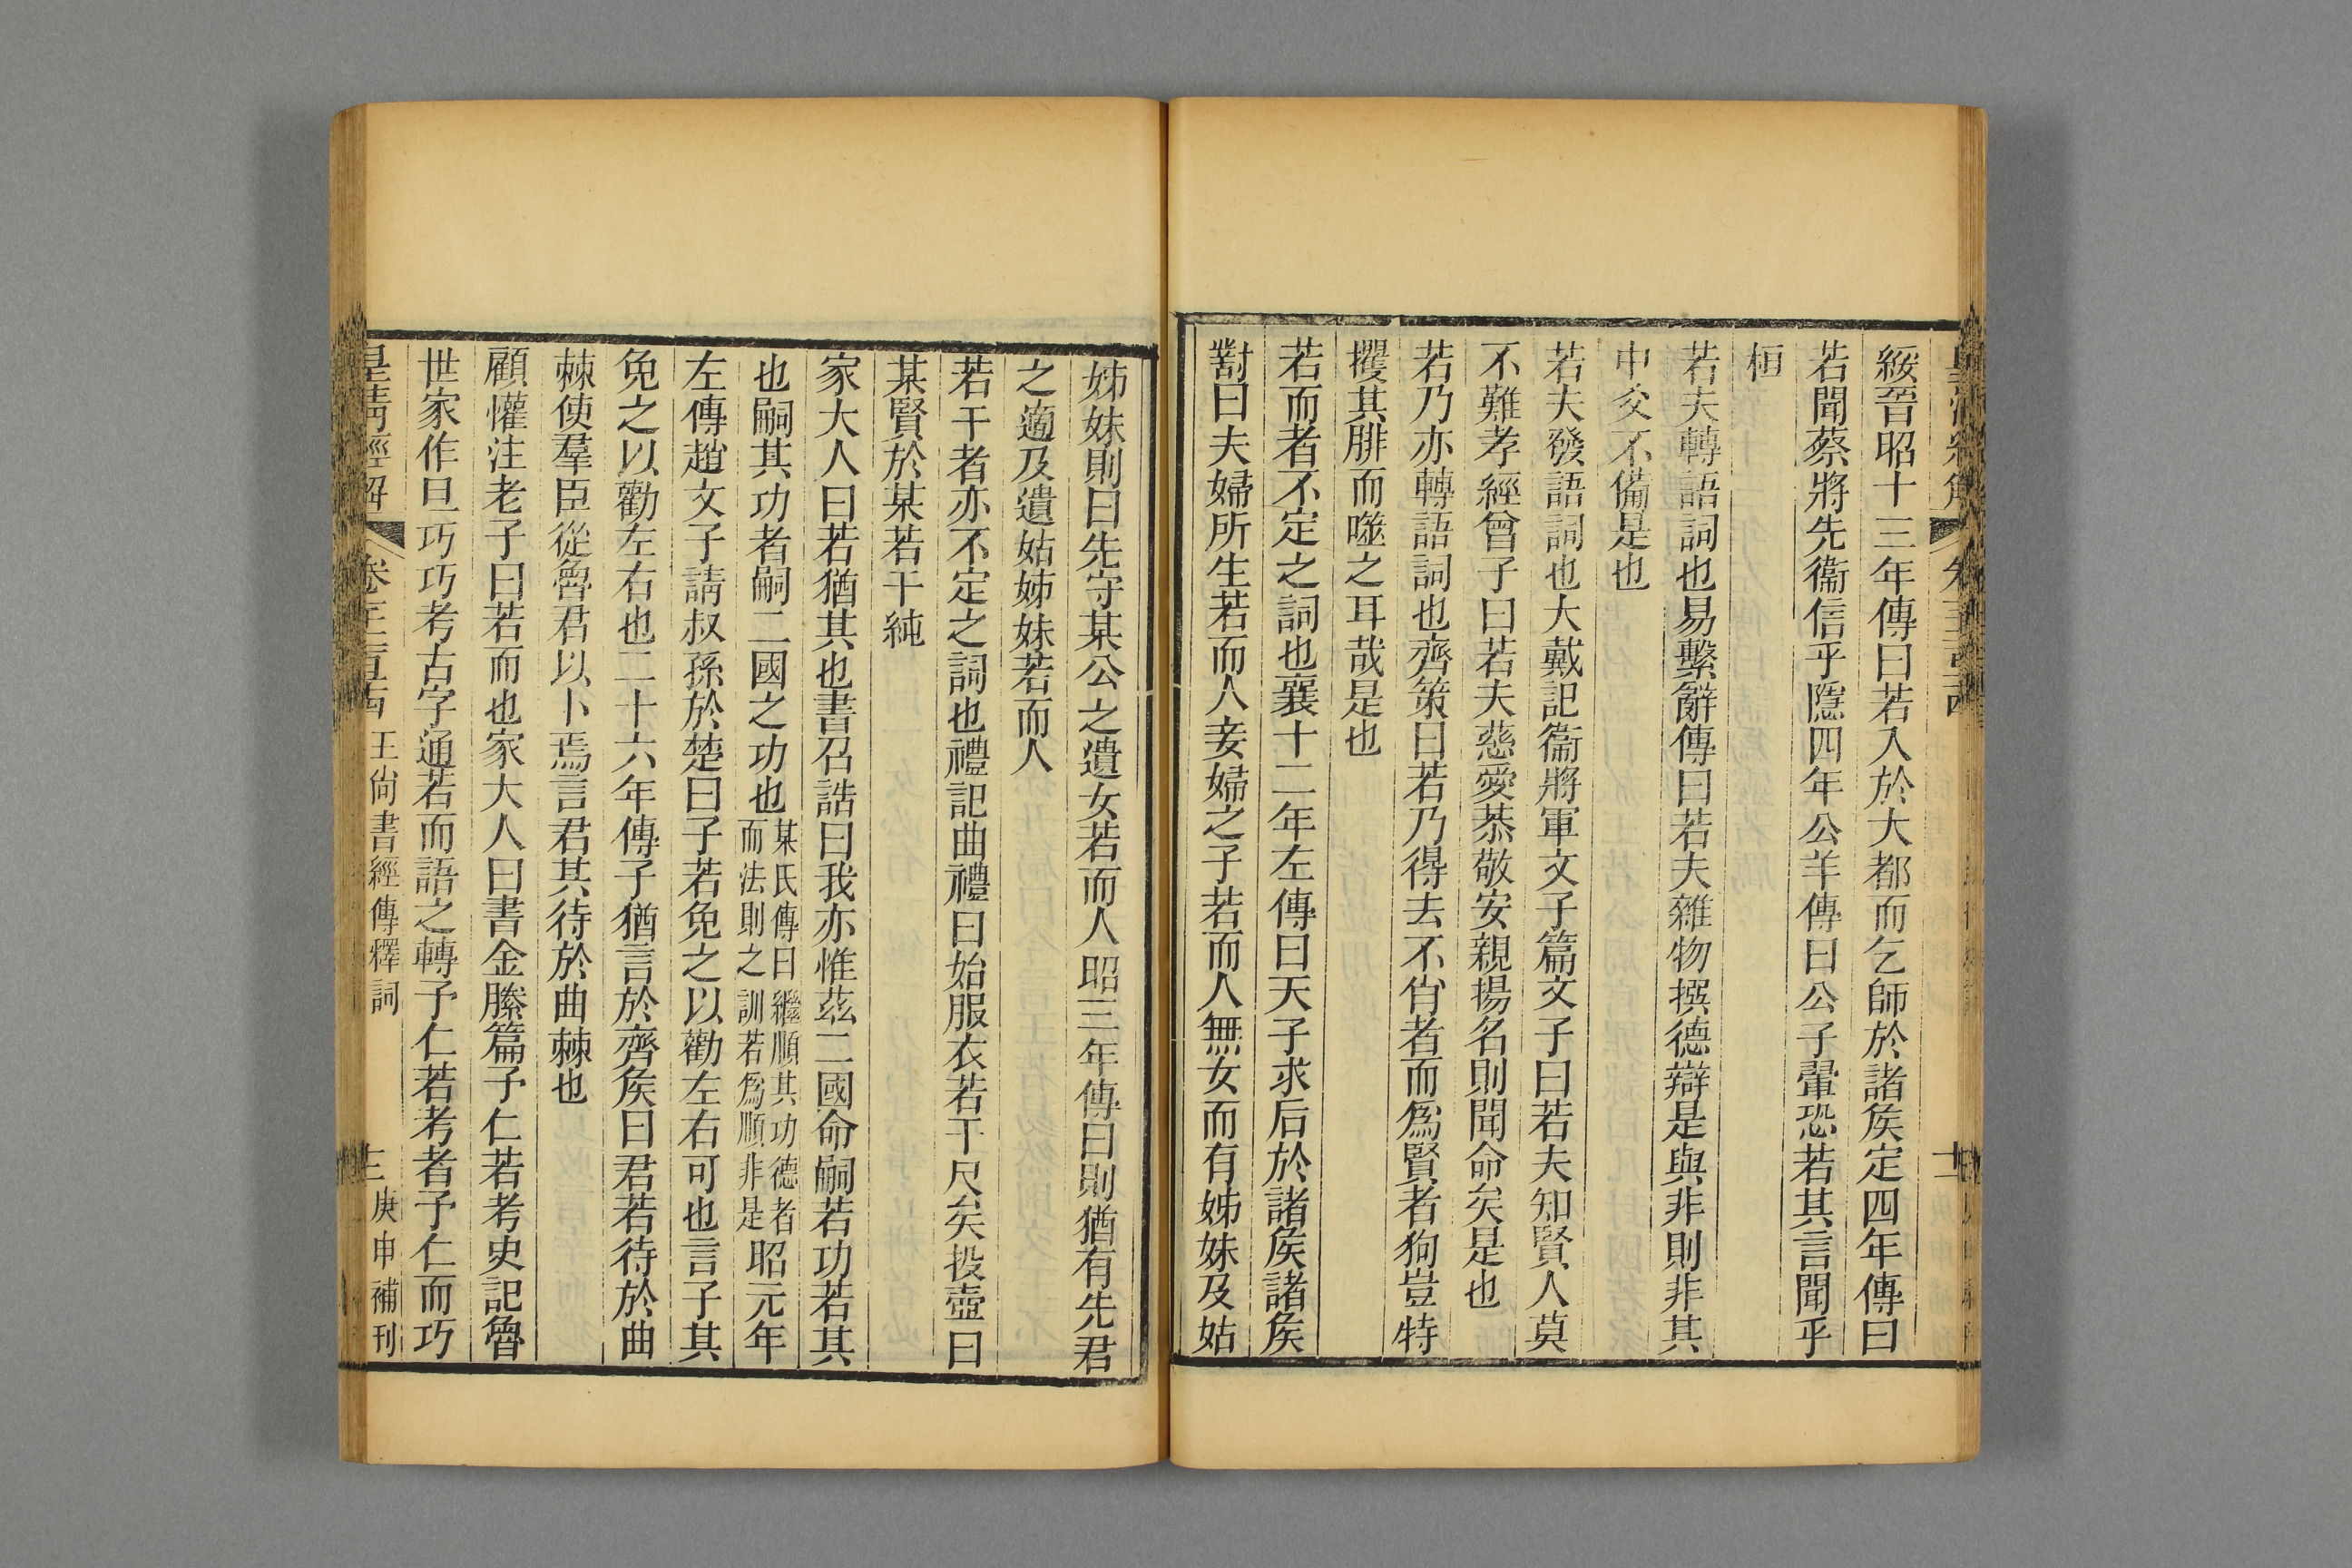 綏晉昭十三年傳曰若入於大都而乞師於諸矦定四年傳曰
若聞蔡將先衞信乎隱四年公羊傳曰公子翬恐若其言聞乎
桓
若夫轉語詞也易繫辭傳曰若夫雜物撰德辯是與非則非其
中爻不備是也
若夫發語詞也大戴記衞將軍文子篇文子曰若夫知賢人莫
不難孝經曾子曰若夫慈愛恭敬安親揚名則聞命矣是也
若乃亦轉語詞也齊策曰若乃得去不肖者而爲賢者狗豈特
攫其腓而噬之耳哉是也
若而者不定之詞也襄十二年左傳曰天子求后於諸矦諸矦
對曰夫婦所生若而人妾婦之子若而人無女而有姊妹及姑
姊妹則曰先守某公之遺女若而人昭三年傳曰則猶有先君
之適及遺姑姊妹若而人
若干者亦不定之詞也禮記曲禮曰始服衣若干尺矣投壺曰
某賢於某若干純
家大人曰若猶其也書召誥曰我亦惟茲二國命嗣若功若其
也嗣其功者嗣二國之功也某氏傳曰繼順其功德者而法則之訓若爲順非是昭元年
左傳趙文子請叔孫於楚曰子若免之以勸左右可也言子其
免之以勸左右也二十六年傳子猶言於齊矦曰君若待於曲
棘使羣臣從魯君以卜焉言君其待於曲棘也
顧懽注老子曰若而也家大人曰書金縢篇予仁若考史記魯
世家作旦巧巧考古字通若而語之轉予仁若考者予仁而巧
皇淸經解 王尙書經傳釋詞 庚申補刊